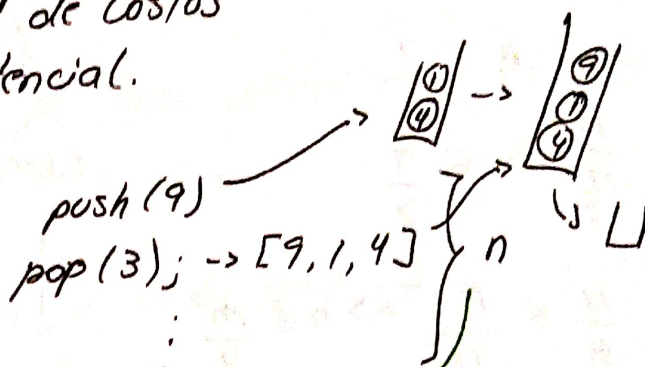 de costos
encial.
① → ⑨
④ ①
④
push(9)
pop(3); -> [9, 1, 4] n
: